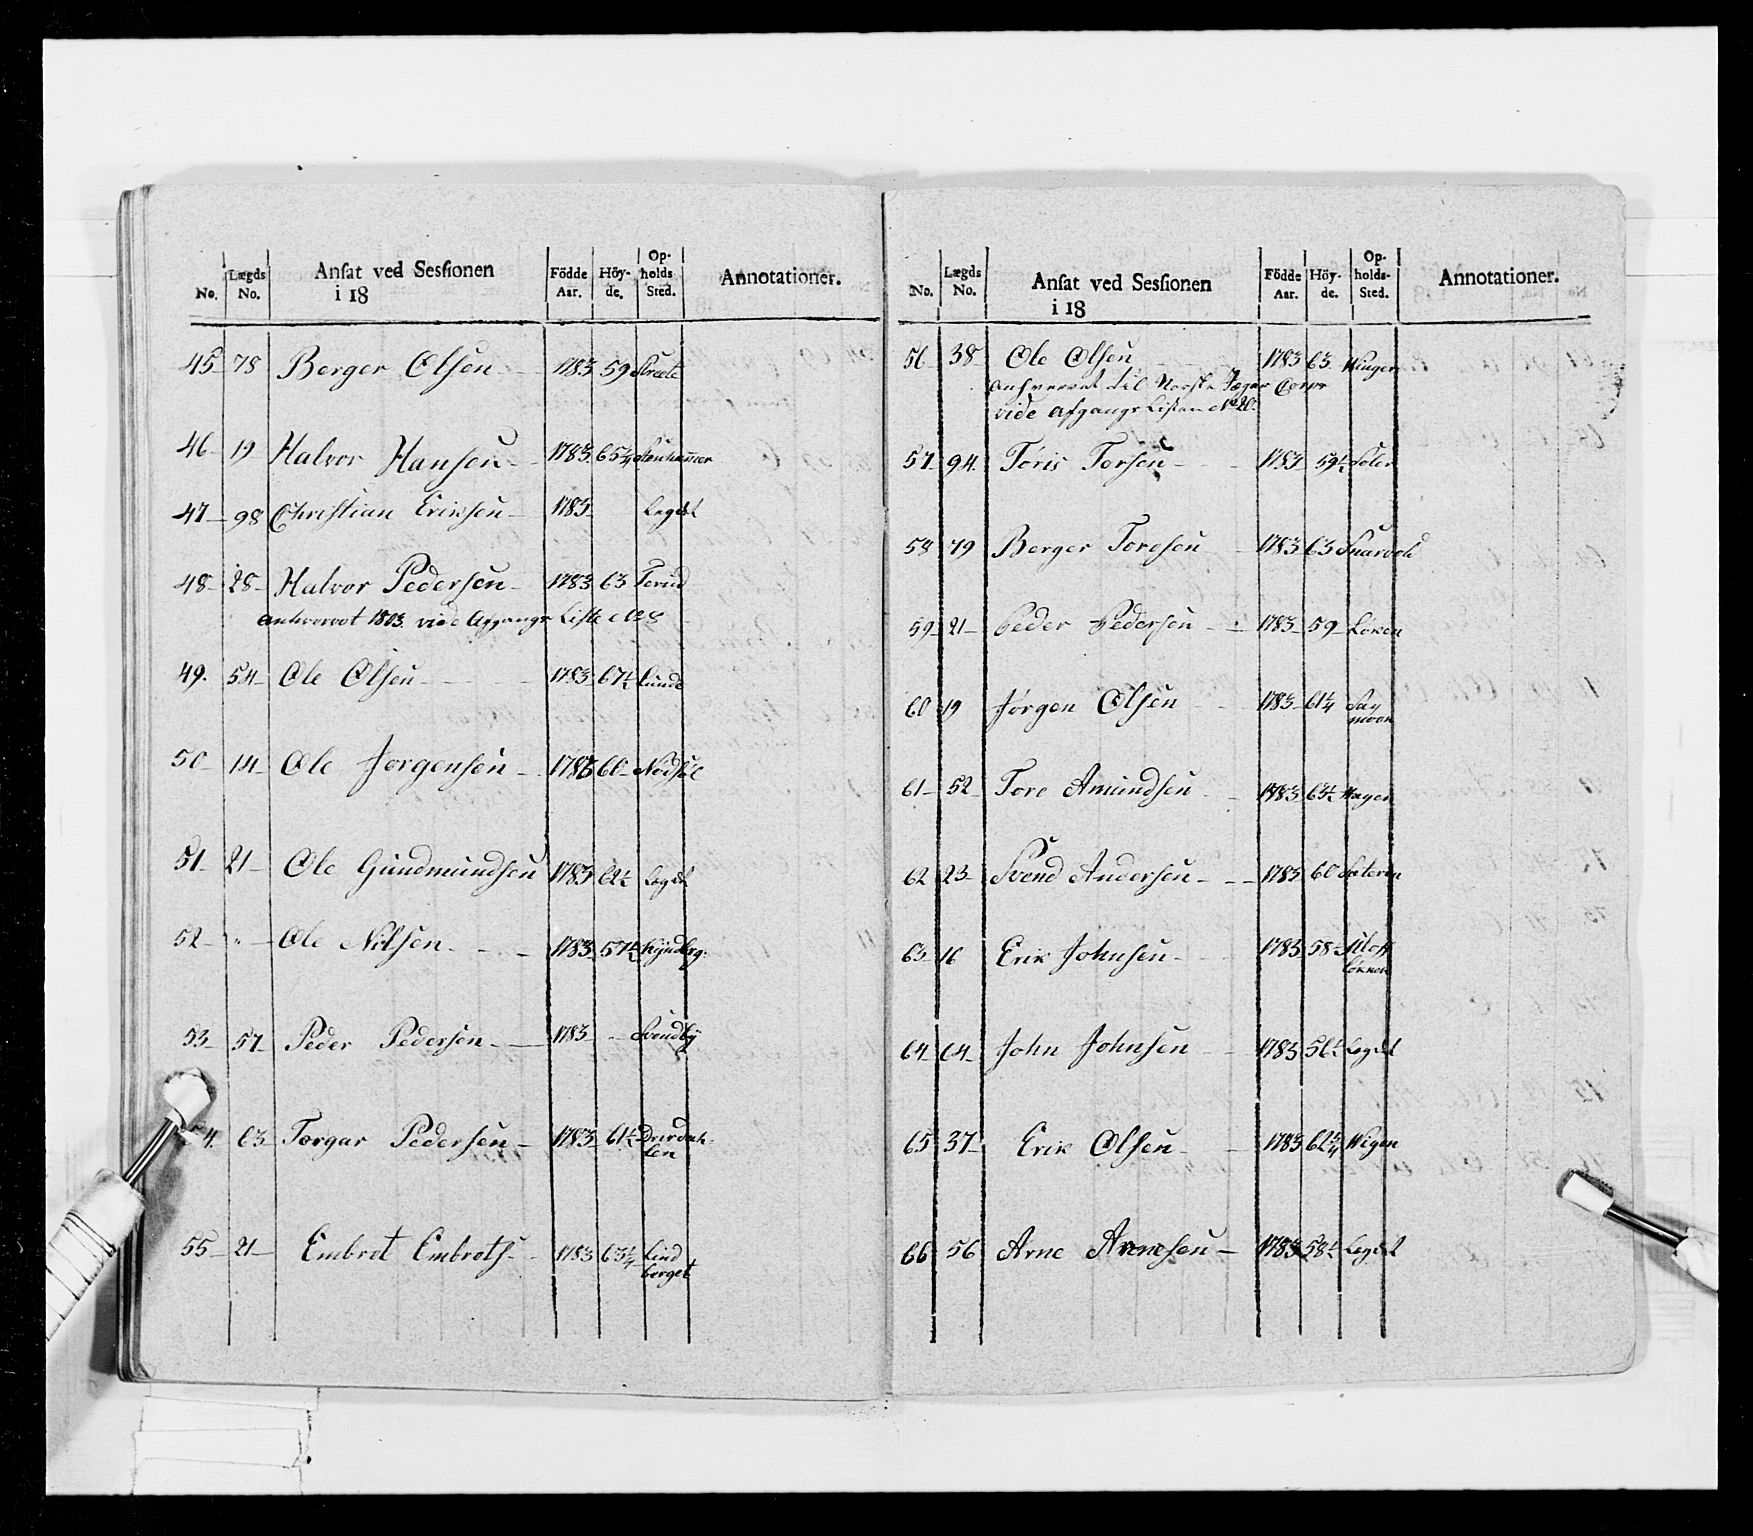 No. Lægds No. Anſat ved Sesſionen i 18 Födde Aar. Höy-de. Op-holds Sted. Annotationer.
45 78 Berger Olsen 1783 59
46 19 Halvor Hansen 1783 65 1/4
47 98 Christian Eriksen 1783 Legdet
48 28 Halvor Pedersen 1783 63 Terud
1803. vide Afgangs Liste No 8
49. 54 Ole Olsen 1783 67 1/2 Lunde
50 14 Ole Jorgensen 1783 60
51 21 Ole Gundmundsen 1783 62 1/2 Legdet
52 " Ole Nilsen 1783 57 1/2
53 57 Peder Pedersen 1783 Svendby
54. 63 Torgar Pedersen 1783 61 1/2
55 21 Embret Embretss 1783 63 1/4 Lind
berget
No. Lægds No. Anſat ved Sesſionen i 18 Födde Aar. Höy-de. Op-holds-Sted. Annotationer.
56 38 Ole Olsen 1783 63 Winger
til Norske Jæger Corps
vide Afgangs Listen No 20.
57 94 Toris Torsen 1783 59 1/2
58 79 Berger Toresen 1783 63
59 21 Peder Pedersen 1783 59 Löken
60 19 Jörgen Olsen 1783 61 1/4
moen
61 52 Tore Amundsen 1783 63 1/2 Hagen
62 23 Svend Andersen 1783 60 Sæteren
63 16 Erik Johnsen 1783 58
lökken
64 64 John Johnsen 1783 56 1/2 Legdet
65 37 Erik Olsen 1783 Wigen
66 56 Arne Arnesen 1783 58 1/2 Legdet